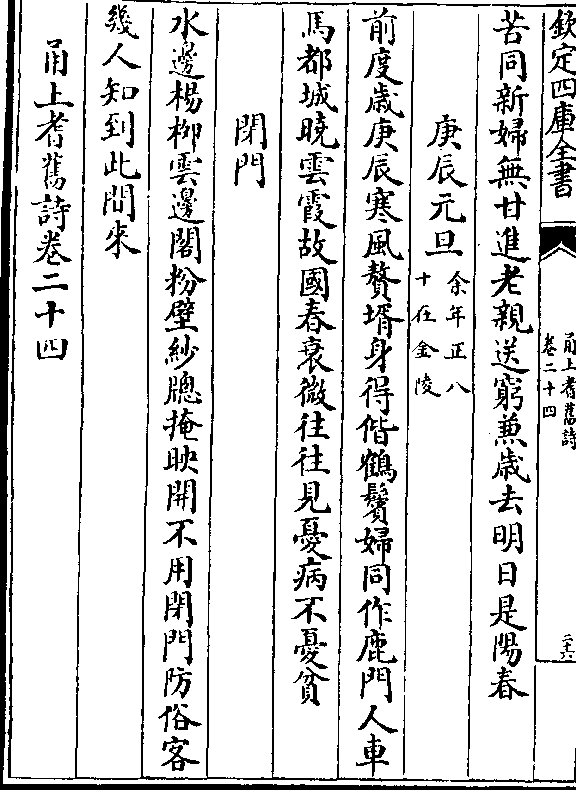 欽定四庫全書
甬上耆舊詩
卷二十四
二十六
苦同新婦無甘進老親送窮兼歳去明日是陽春
庚辰元旦
余年正八
十在金陵
前度歳庚辰寒風贅壻身得偕鶴鬢婦同作鹿門人車
馬都城曉雲霞故國春衰微往往見憂病不憂貧
閉門
水邊楊柳雲邊閣粉壁紗牕掩映開不用閉門防俗客
幾人知到此間來
甬上耆舊詩卷二十四